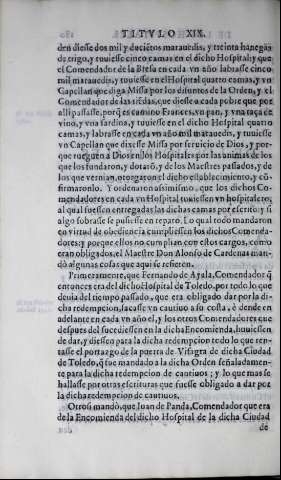 TITVLO XIX.
den diesse dos mil y duciẽtos marauedis, y treinta hanegas
de trigo, y tuuiesse cinco camas en el dicho Hospital; y que
el Comendador de la Bresa en cada vn año labrasse cinco
mil marauedis, y tuuiesse en el Hospital quatro camas, y vn
Capellan que diga Missa por los difuntos de la Orden, y el
Comendador de las tiẽdas, que diesse a cada pobre que por
alli passasse, porq̃ es camino Frances, vn pan, y vna taça de
vino, y vna sardina, y tuuiesse en el dicho Hospital quatro
camas, y labrasse en cada vn año mil marauedis, y tuuiesse
vn Capellan que dixesse Missa por seruicio de Dios, y por-
que rueguen a Dios en los Hospitales por las animas de los
que los fundaron, y dotarõ, y de los Maestres passados, y de
los que vernian, otorgaron el dicho establecimiento, y cõ-
firmaronlo. Y ordenaron assimismo, que los dichos Co-
mendadores en cada vn Hospital tuuiessen vn hospitalero,
al qual fuessen entregadas las dichas camas por escrito; y si
algo sobrasse se pusiesse en reparo. Lo qual todo mandaron
en virtud de obediencia cumpliessen los dichos Comenda-
dores; y porque ellos no cumplian con estos cargos, como
eran obligados, el Maestre Don Alonso de Cardenas man-
dò algunas cosas que aqui se refieren.
Primeramente, que Fernando de Ayala, Comendador q̃
entonces era del dicho Hospital de Toledo, por todo lo que
deuia del tiempo passado, que era obligado dar por la di-
cha redempcion, sacasse vn cautiuo a su costa, è dende en
adelante en cada vn año èl, y los otros Comendadores que
despues del sucediessen en la dicha Encomienda, huuiessen
de dar, y diessen para la dicha redempcion todo lo que ren-
tasse el portazgo de la puerta de Visagra de dicha Ciudad
de Toledo, q̃ fue mandado a la dicha Orden señaladamen-
te para la dicha redempcion de cautiuos; y lo que mas se
hallasse por otras escrituras que fuesse obligado a dar por
la dicha redempcion de cautiuos.
Otrosi mandò, que Iuan de Panda, Comendador que era
de la Encomienda del dicho Hospital de la dicha Ciudad
de